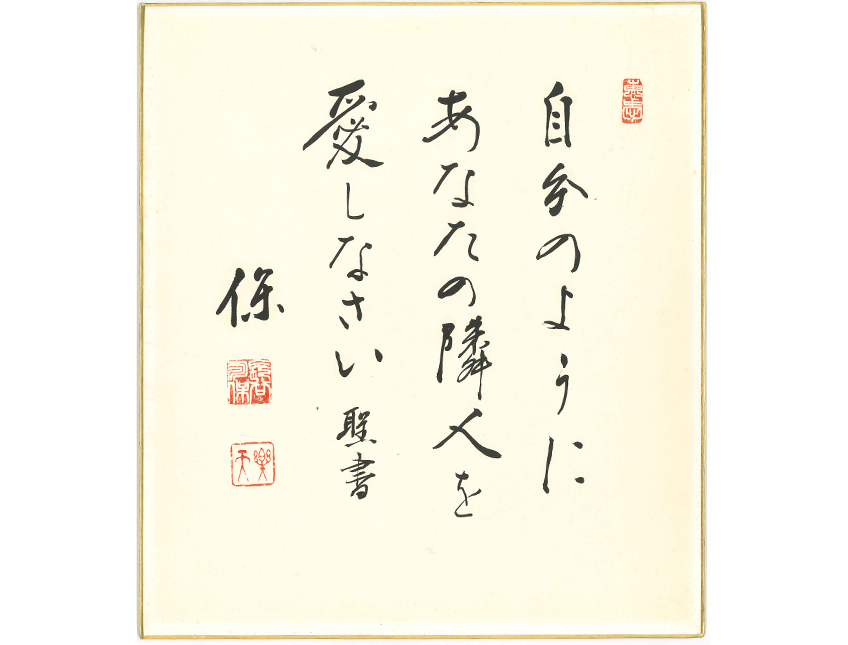 自分のように
あなたの隣人を
愛しなさい 聖書
保